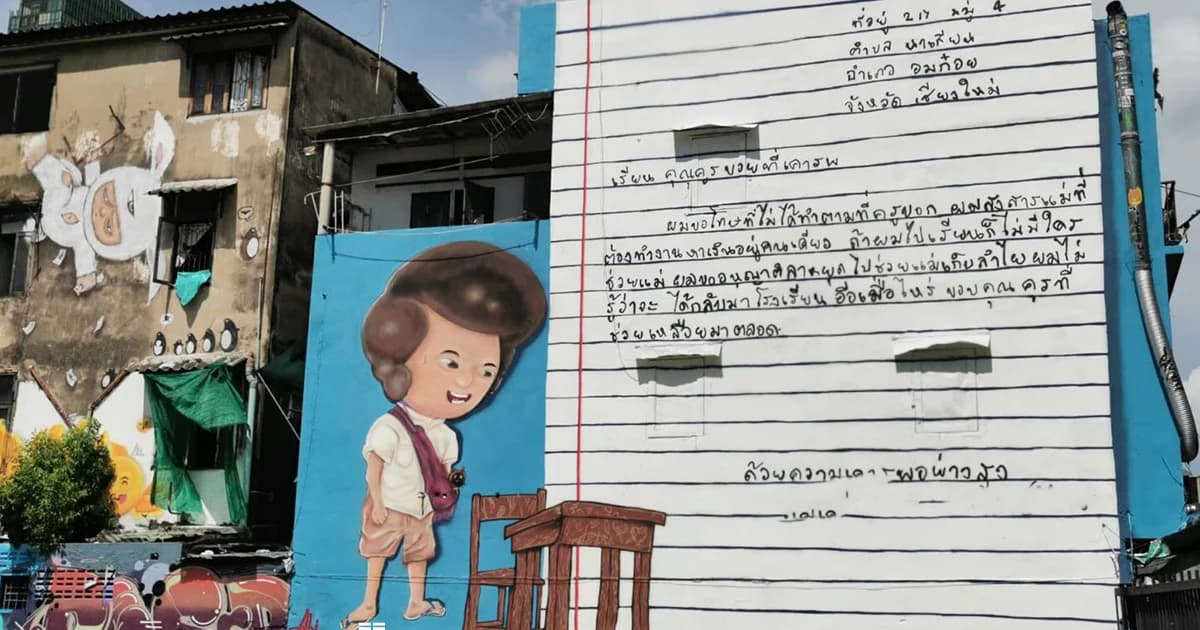 ที่อยู่ 217 หมู่ 4
ตำบล นาเกียน
อำเภอ อมก๋อย
จังหวัด เชียงใหม่
เรียน คุณครู ที่เคารพ
ผมขอโทษที่ไม่ได้ทำตามที่ครูบอก ผมสงสารแม่ที่
ต้องทำงานหาเงินอยู่คนเดียว ถ้าผมไปเรียนก็ไม่มีใคร
ช่วยแม่ ผมขออนุญาติลาหยุด ไปช่วยแม่เก็บลำไย ผมไม่
รู้ว่าจะ ได้กลับมา โรงเรียน อีกเมื่อไหร่ ขอบคุณ ครูที่
ช่วยเหลือผมมาตลอด
ด้วยความเคารพอย่างสูง